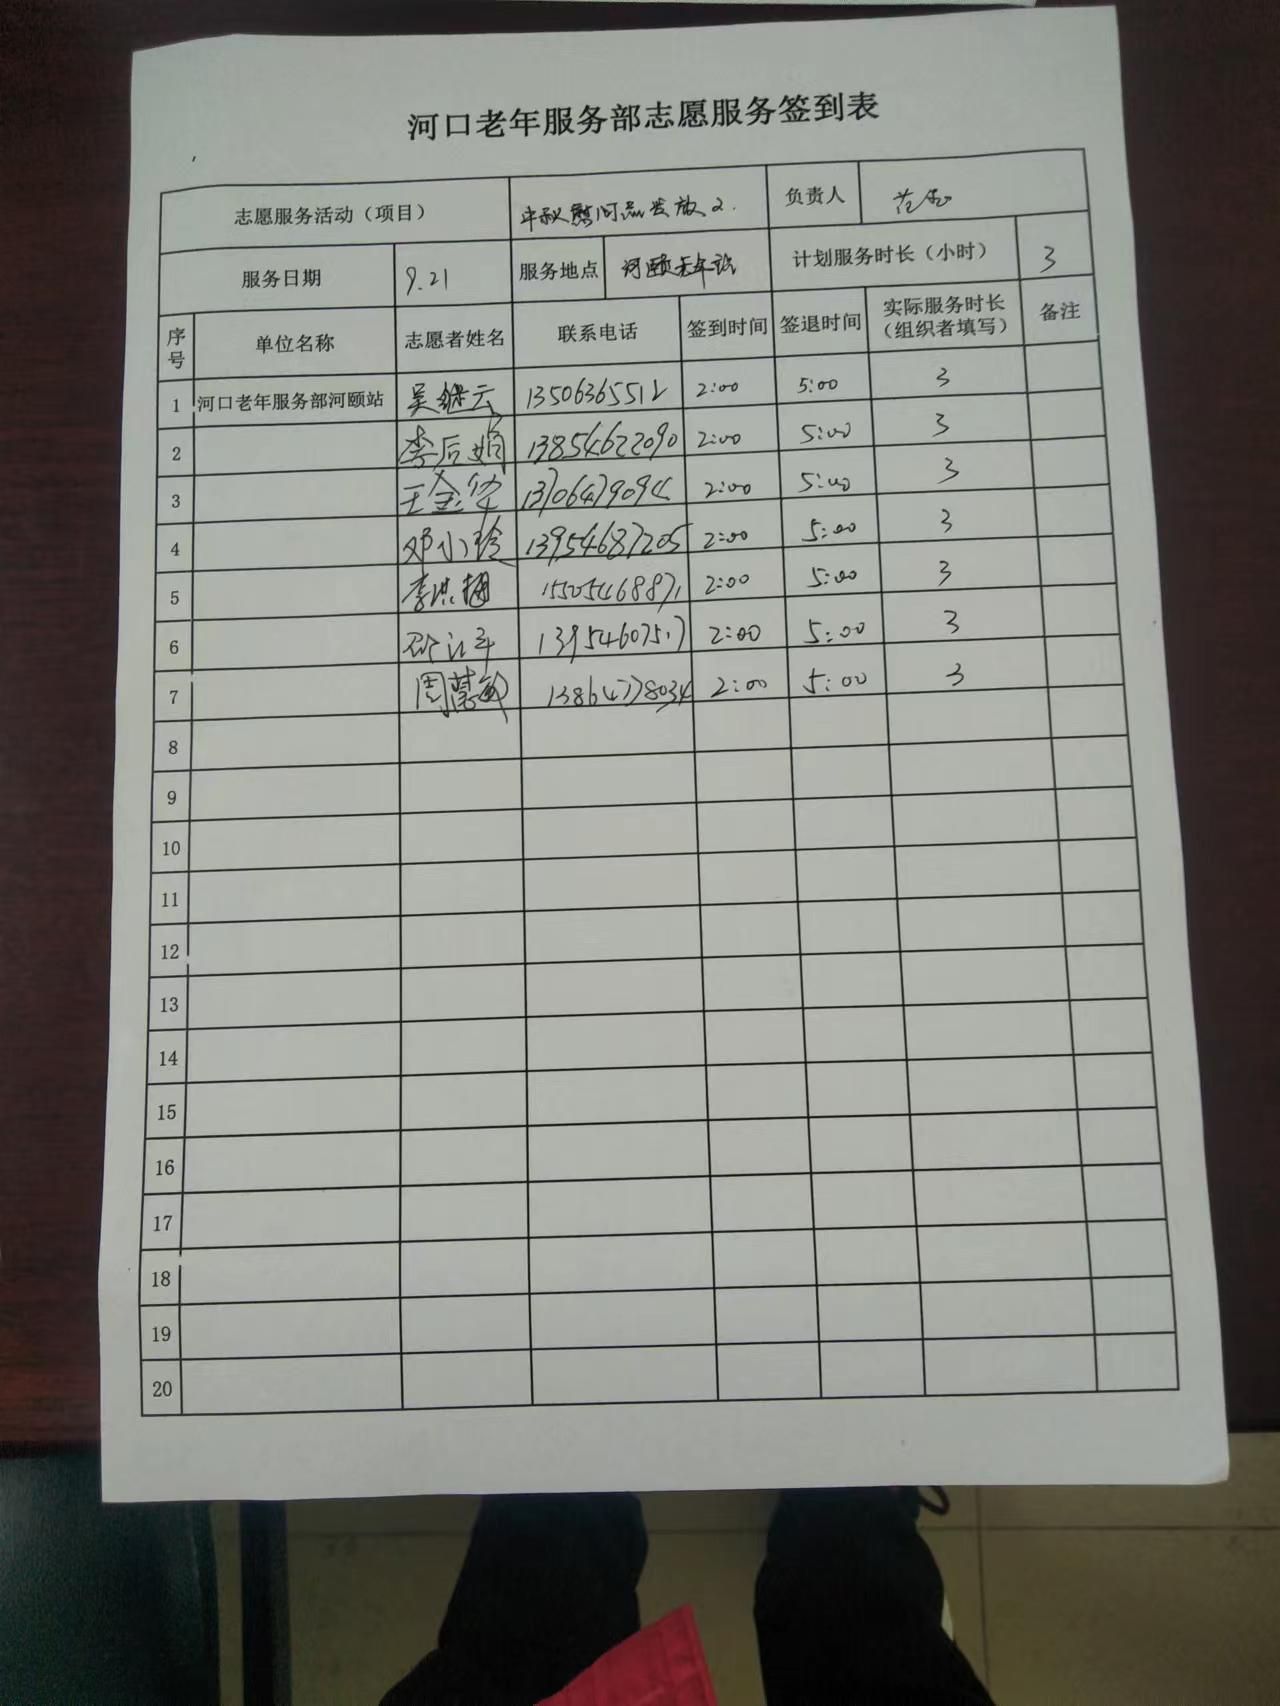 河口老年服务部志愿服务签到表
志愿服务活动（项目） 中秋慰问品发放2. 负责人 范
服务日期 9.21 服务地点 河颐老年站 计划服务时长（小时） 3
序号 单位名称 志愿者姓名 联系电话 签到时间 签退时间 实际服务时长（组织者填写） 备注
1 河口老年服务部河颐站 吴继云 13506365512 2:00 5:00 3
2 李后娟 13854622090 2:00 5:00 3
3 王金 13706479094 2:00 5:00 3
4 邓小玲 13954687205 2:00 5:00 3
5 李洪梅 15505468871 2:00 5:00 3
6 13954607517 2:00 5:00 3
7 周慧敏 13864778034 2:00 5:00 3
8
9
10
11
12
13
14
15
16
17
18
19
20